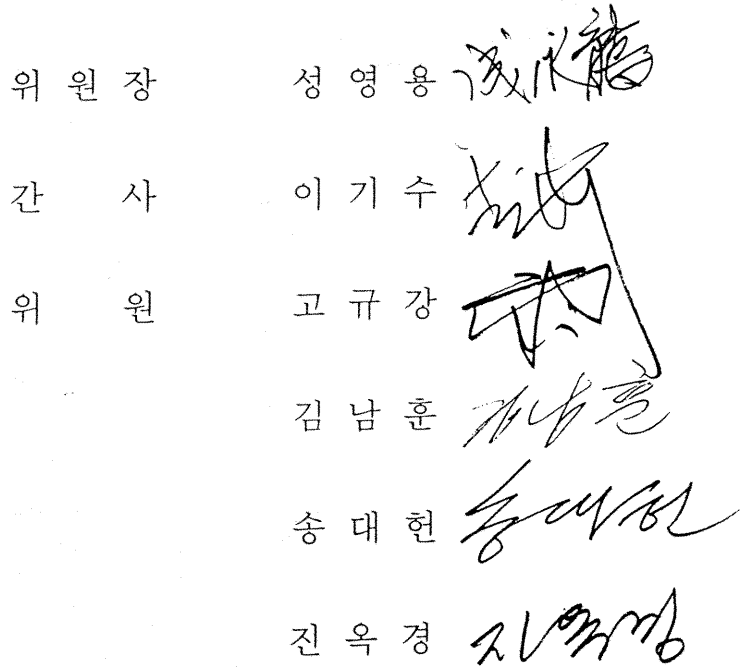 위 원 장 성 영 용 成永龍
간 사 이 기 수
위 원 고 규 강
김 남 훈 김남훈
송 대 헌 송대헌
진 옥 경 진옥경